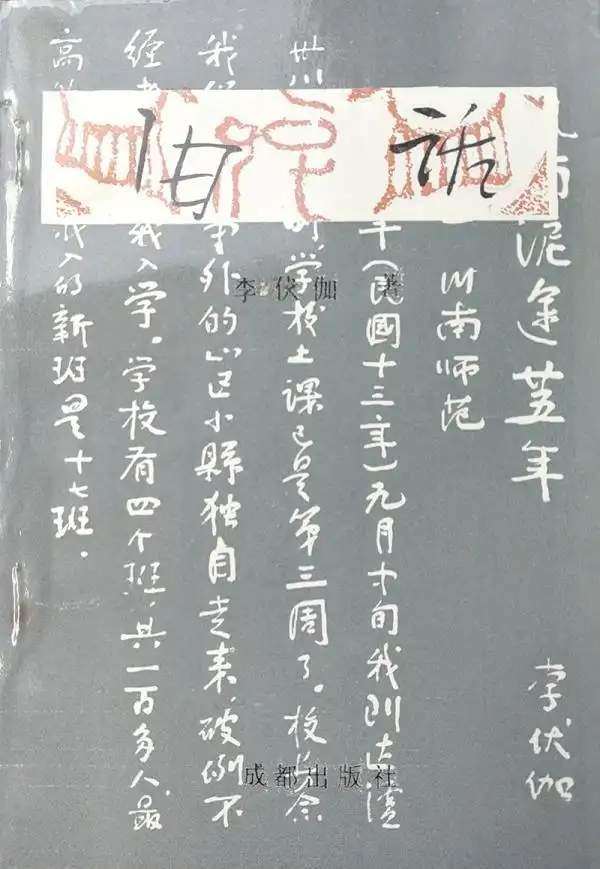 旧話
李伏伽 著
泥途廿五年
李伏伽
川南师范
年(民國十三年)九月中旬我到达
时,学校上课已是第三周了。校长
我 外的山区小縣独自走来,破例不
经 我入学。学校有四个班,共一百多人。最
高 我入的新班是十七班。
成都出版社